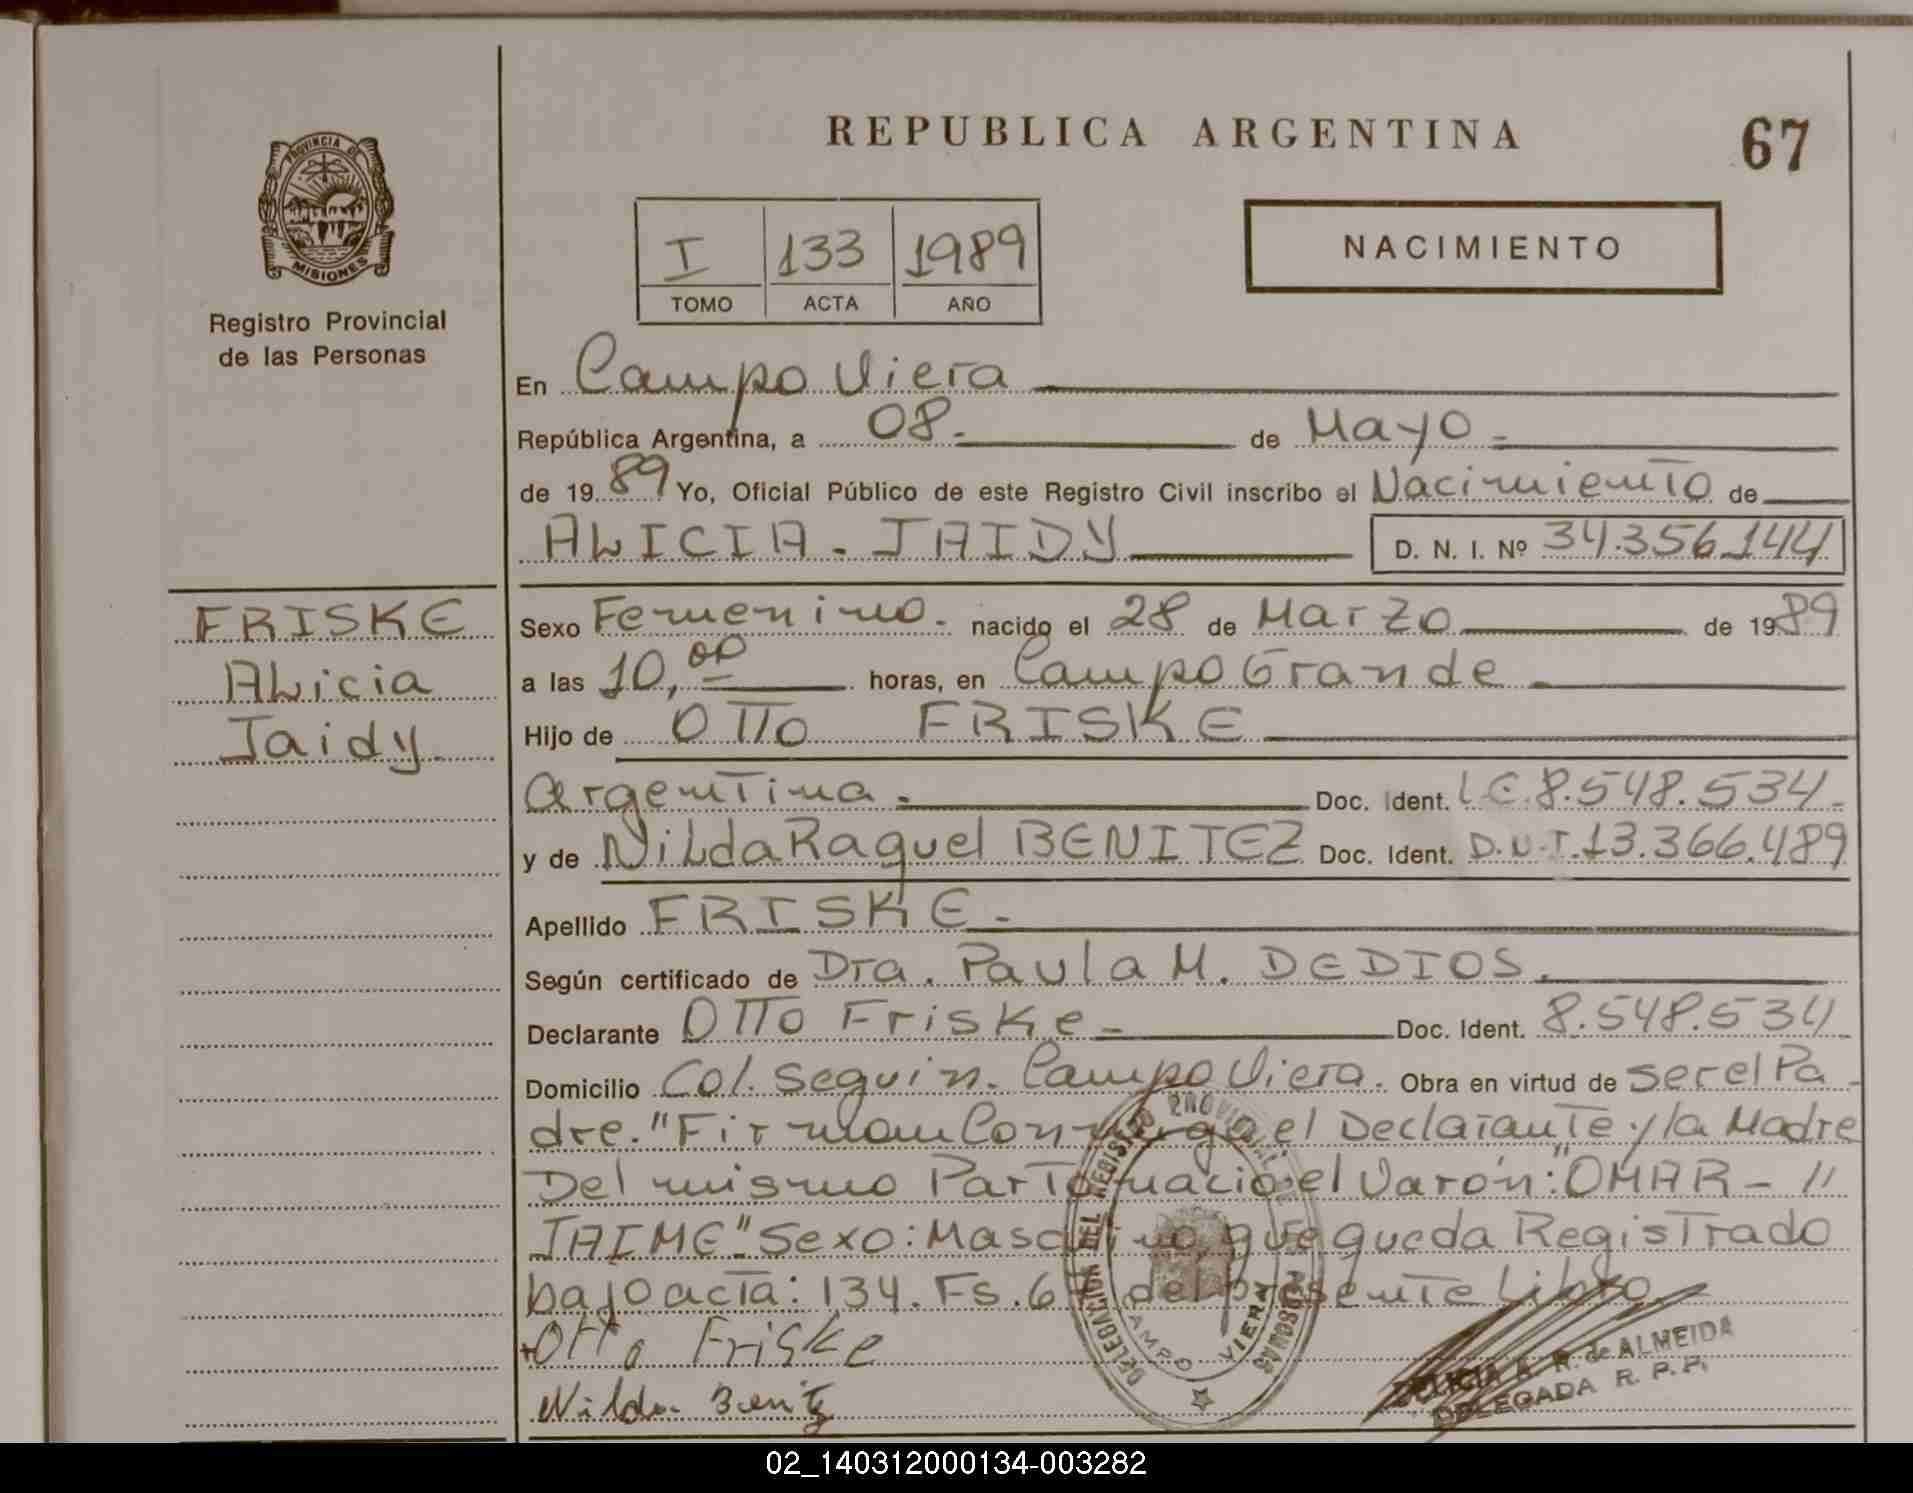 REPUBLICA ARGENTINA
67
PROVINCIA DE
MISIONES
Registro Provincial
de las Personas
I 133 1989
TOMO ACTA AÑO
NACIMIENTO
En Campo Viera
República Argentina, a 08.- de Mayo.-
de 1989 Yo, Oficial Público de este Registro Civil inscribo el Nacimiento de
ALICIA - JAIDY D. N. I. Nº 34.356.144
FRISKE
Alicia
Jaidy.
Sexo Femenino. nacido el 28 de Marzo de 1989
a las 10,00 horas, en Campo Grande.
Hijo de OTTO FRISKE
argentina. Doc. Ident. L.E. 8.548.534.-
y de Nilda Raquel BENITEZ Doc. Ident. D.N.I. 13.366.489
Apellido FRISKE.-
Según certificado de Dra. Paula M. DEDIOS.
Declarante OTTO Friske.- Doc. Ident. 8.548.534
Domicilio Col. Seguin. Campo Viera. Obra en virtud de ser el Pa-
dre. "Firman Conmigo el Declarante y la Madre
Del mismo Parto nacio el Varón: "OMAR - "
JAIME" Sexo: Masculino, que queda Registrado
bajo acta: 134. Fs. 67 del presente Libro.
Otto Friske
Nilda Benitz
DELEGACION DEL REGISTRO PROVINCIAL DE
CAMPO VIERA
MISIONES
DELICIA A. R. de ALMEIDA
DELEGADA R. P. P.
02_140312000134-003282